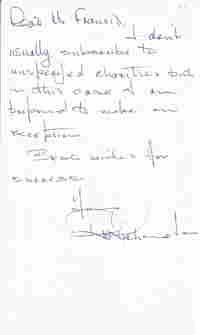 Dear Mr Francis,
I don't
usually subscribe to
unspecified charities but
in this case I am
prepared to make an
exception.
Best wishes for
success